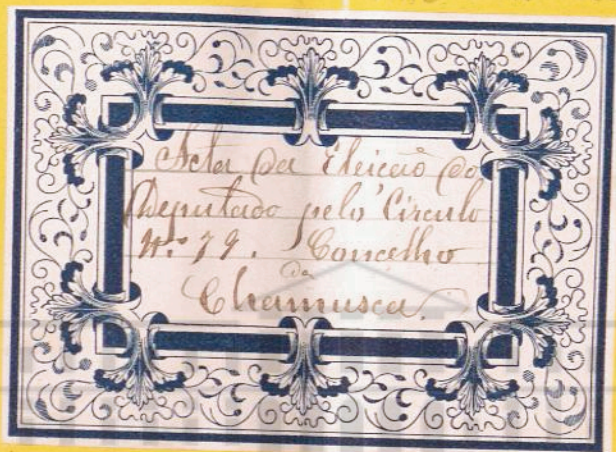 Acta da Eleicaõ do
Deputado pelo Circulo
Nº 79. Concelho
da
Chamusca.